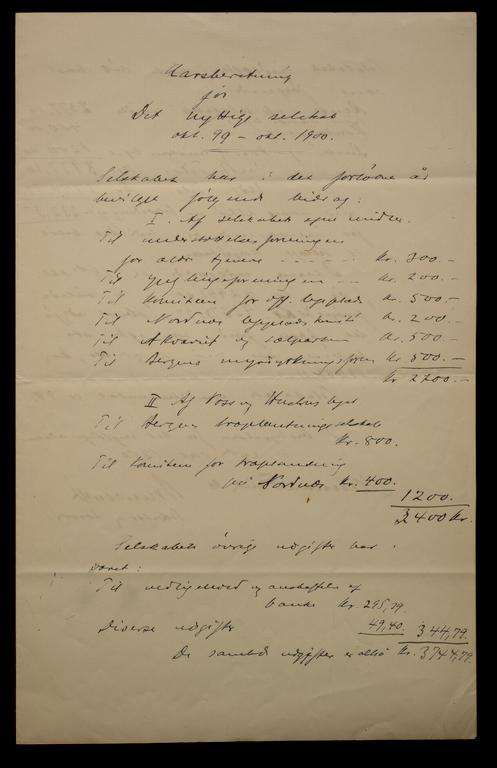 Aarsberetning
for
Det nyttige selskab
okt. 99 – okt. 1900.
Selskabet har i det forløbne år
bevilget følgende bidrag:
I. Af selskabets egne midler.
Til understøttelsesforeningen
for ældre tjenere ..... Kr. 300.–
Til Ynglingeforeningen .. Kr. 200.–
Til Komiteen for off. legeplads Kr. 500.–
Til Nordnæs legeplads Kr. 200.–
Til Akvariet og sælparken Kr. 500.–
Til Bergens Kr. 500.–
Kr 2200.–
II Af Voss og
Til Bergens træplantningsselskab
Kr. 800.
Til Komiteen for træplantning
på Nordnæs Kr. 400.
1200.
3400 Kr.
Selskabets øvrige udgifter har
været:
Til vedligehold og anskaffelse af
bænke Kr. 295,39
Diverse udgifter 49,40. 344,79.
De samlede udgifter er altså Kr. 3744,79.